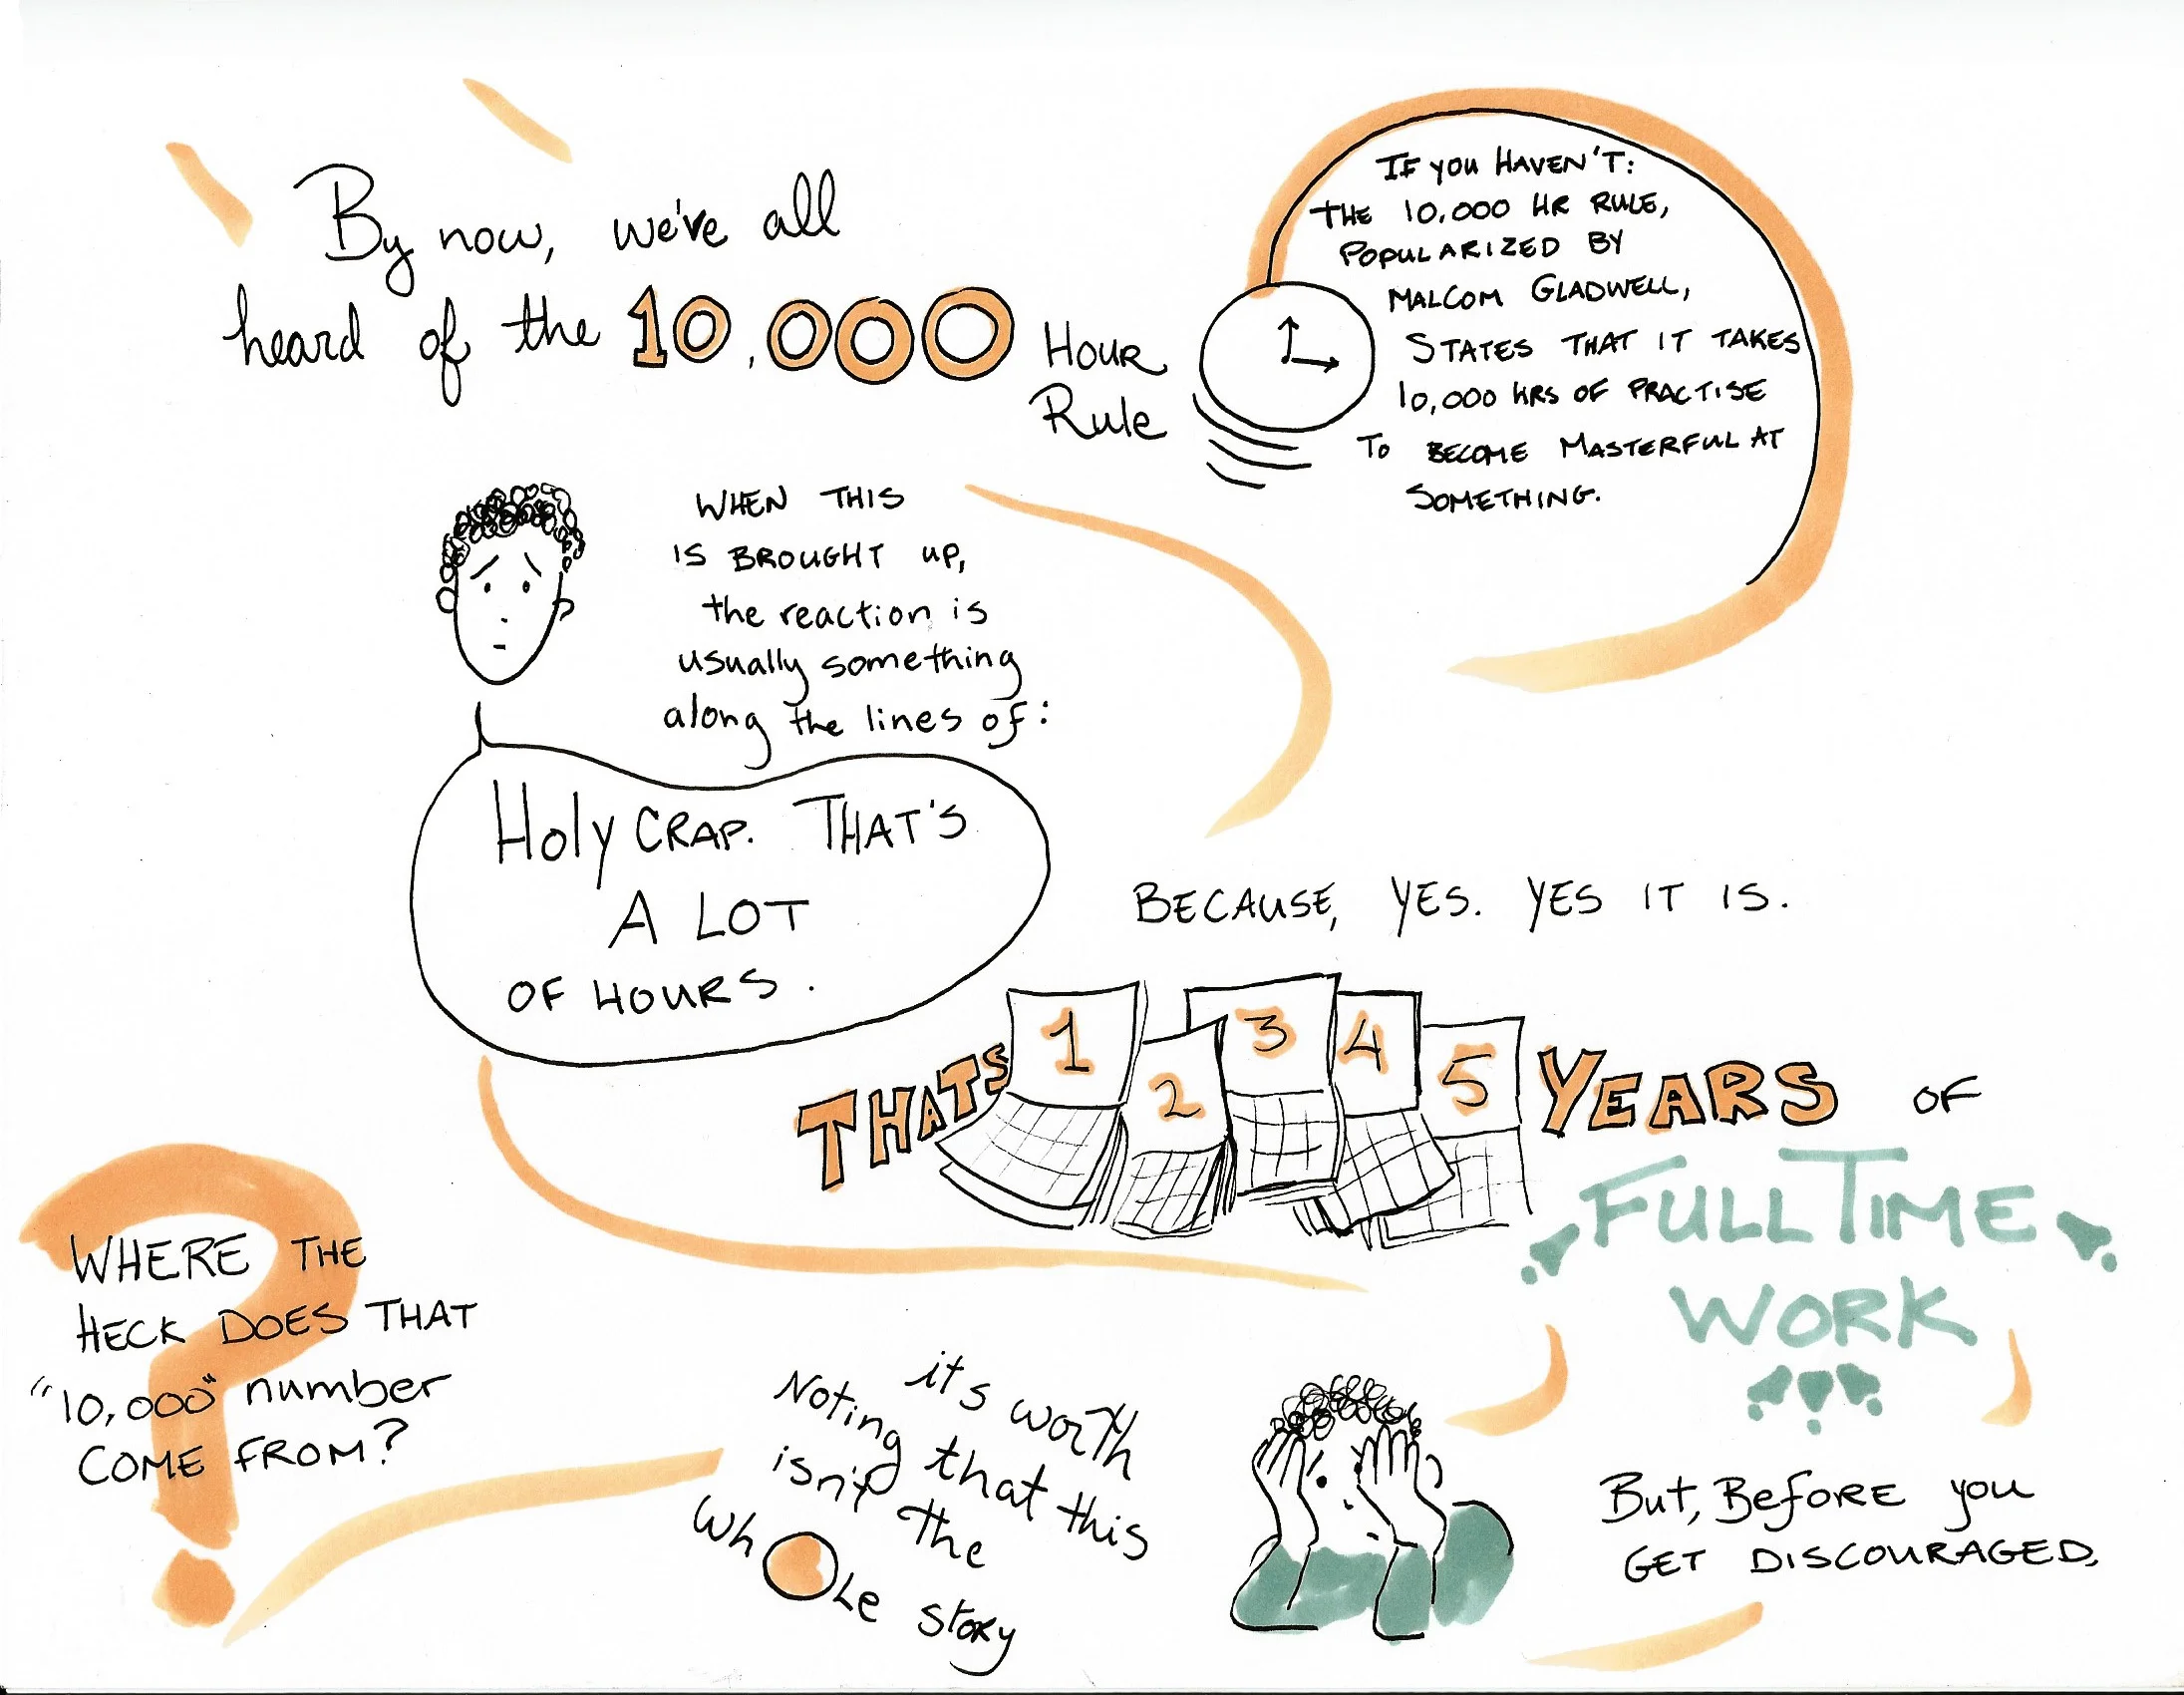 By now, we've all
heard of the 10,000 Hour
Rule
IF YOU HAVEN'T:
THE 10,000 HR RULE,
POPULARIZED BY
MALCOM GLADWELL,
STATES THAT IT TAKES
10,000 HRS OF PRACTISE
TO BECOME MASTERFUL AT
SOMETHING.
WHEN THIS
IS BROUGHT UP,
the reaction is
usually something
along the lines of:
HOLY CRAP. THAT'S
A LOT
OF HOURS.
BECAUSE, YES. YES IT IS.
THATS 1 2 3 4 5 YEARS OF
FULL TIME
WORK
But, BEFORE you
GET DISCOURAGED,
it's worth
Noting that this
isn't the
whole story
WHERE THE
HECK DOES THAT
"10,000" number
COME FROM?